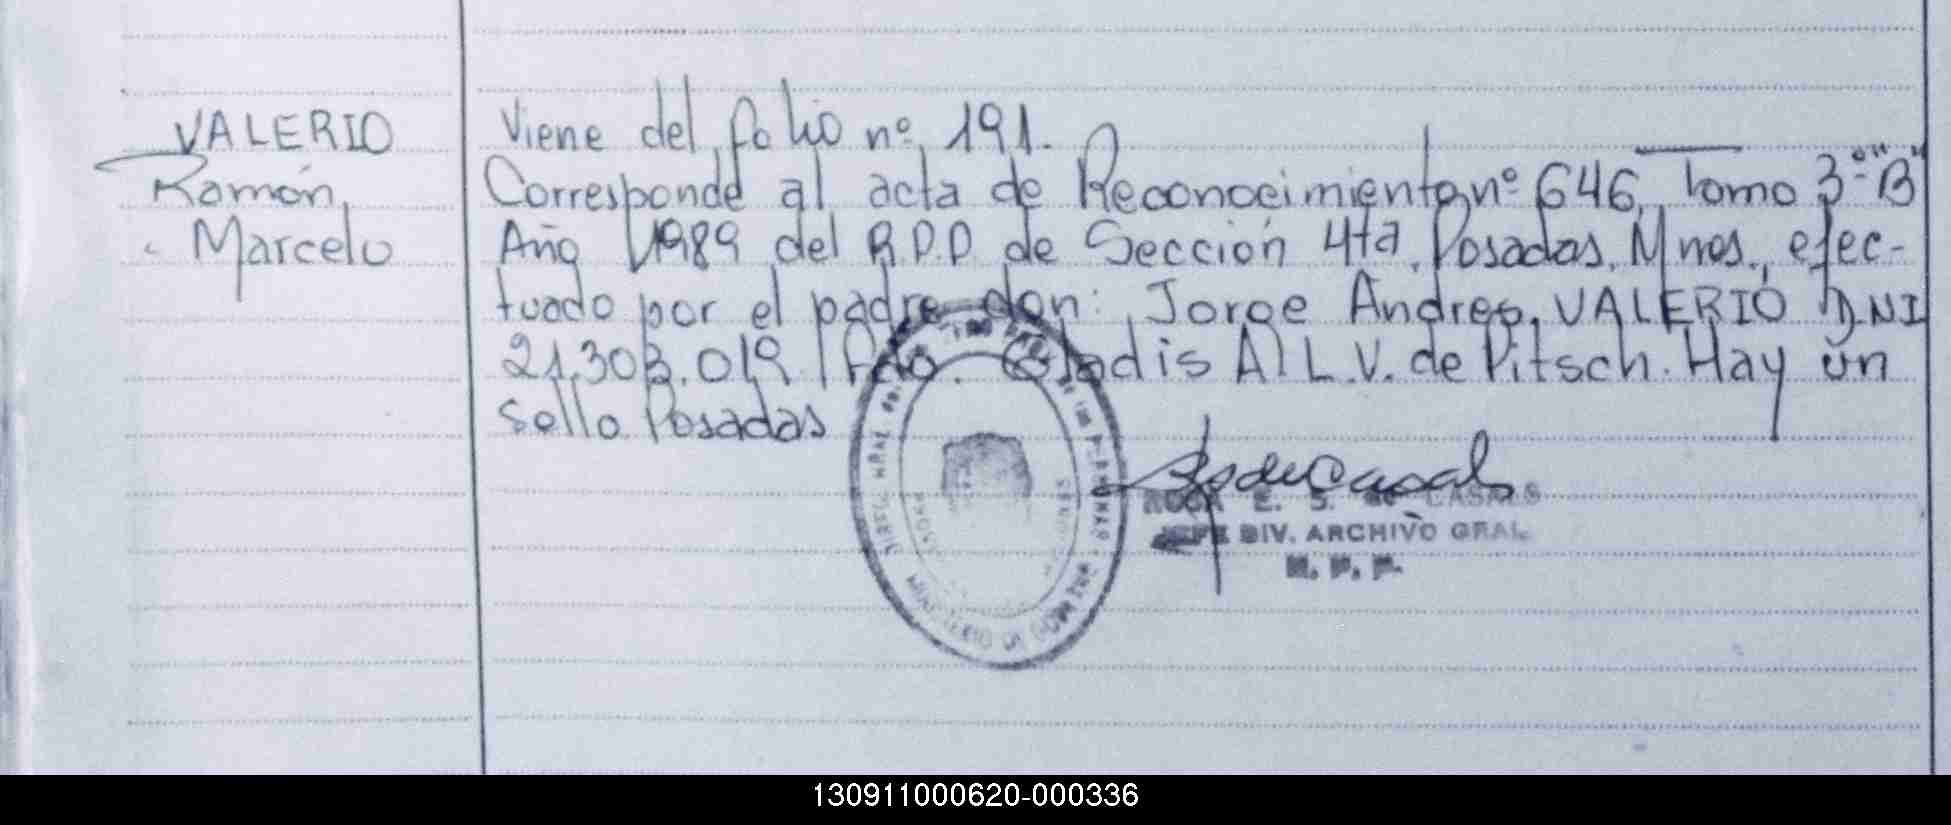 VALERIO
Ramón
Marcelo
Viene del folio nº 191.
Corresponde al acta de Reconocimiento nº 646, Tomo 3º "B"
Año 1989 del R.P.P. de Sección 4ta. Posadas. Mnes., efec-
tuado por el padre don: Jorge Andres, VALERIO D.N.I
21.303.019. Fdo. Gladis A. L.V. de Pitsch. Hay un
sello Posadas
E. S. de CASALS
JEFE DIV. ARCHIVO GRAL.
130911000620-000336